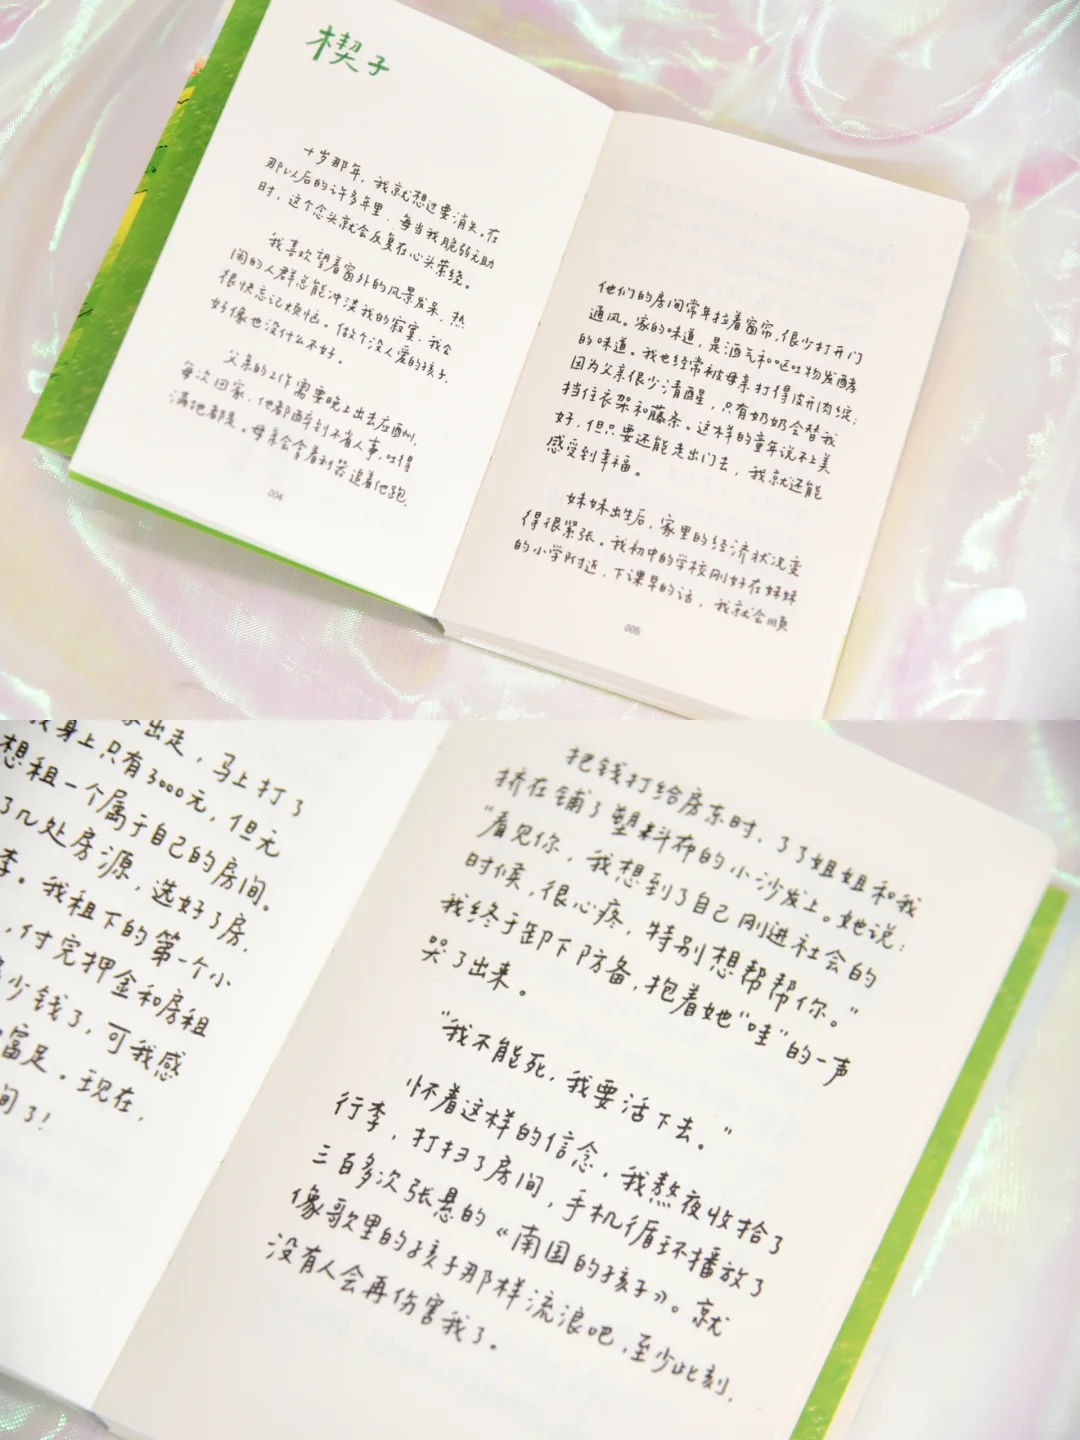 楔子
十岁那年，我就想过要消失。在
那以后的许多年里，每当我脆弱无助
时，这个念头就会反复在心头萦绕。
我喜欢望着窗外的风景发呆，热
闹的人群总能冲淡我的寂寞，我会
很快忘记烦恼。做个没人爱的孩子，
好像也没什么不好。
父亲的工作需要晚上出去应酬，
每次回家，他都醉到不省人事，吐得
满地都是。母亲会拿着利器追着他跑，
004
他们的房间常年拉着窗帘，很少打开门
通风。家的味道，是酒气和呕吐物发酵
的味道。我也经常被母亲打得皮开肉绽；
因为父亲很少清醒，只有奶奶会替我
挡住衣架和藤条。这样的童年说不上美
好，但只要还能走出门去，我就还能
感受到幸福。
妹妹出生后，家里的经济状况变
得很紧张。我初中的学校刚好在妹妹
的小学附近，下课早的话，我就会顺
005
出走，马上打了
身上只有3000元，但无
想租一个属于自己的房间。
了几处房源，选好了房，
李。我租下的第一个小
，付完押金和房租
少钱了，可我感
富足。现在，
间了！
把钱打给房东时，了了姐姐和我
挤在铺了塑料布的小沙发上。她说：
“看见你，我想到了自己刚进社会的
时候，很心疼，特别想帮帮你。”
我终于卸下防备，抱着她“哇”的一声
哭了出来。
“我不能死，我要活下去。”
怀着这样的信念，我熬夜收拾了
行李，打扫了房间，手机循环播放了
三百多次张悬的《南国的孩子》。就
像歌里的孩子那样流浪吧，至少此刻，
没有人会再伤害我了。